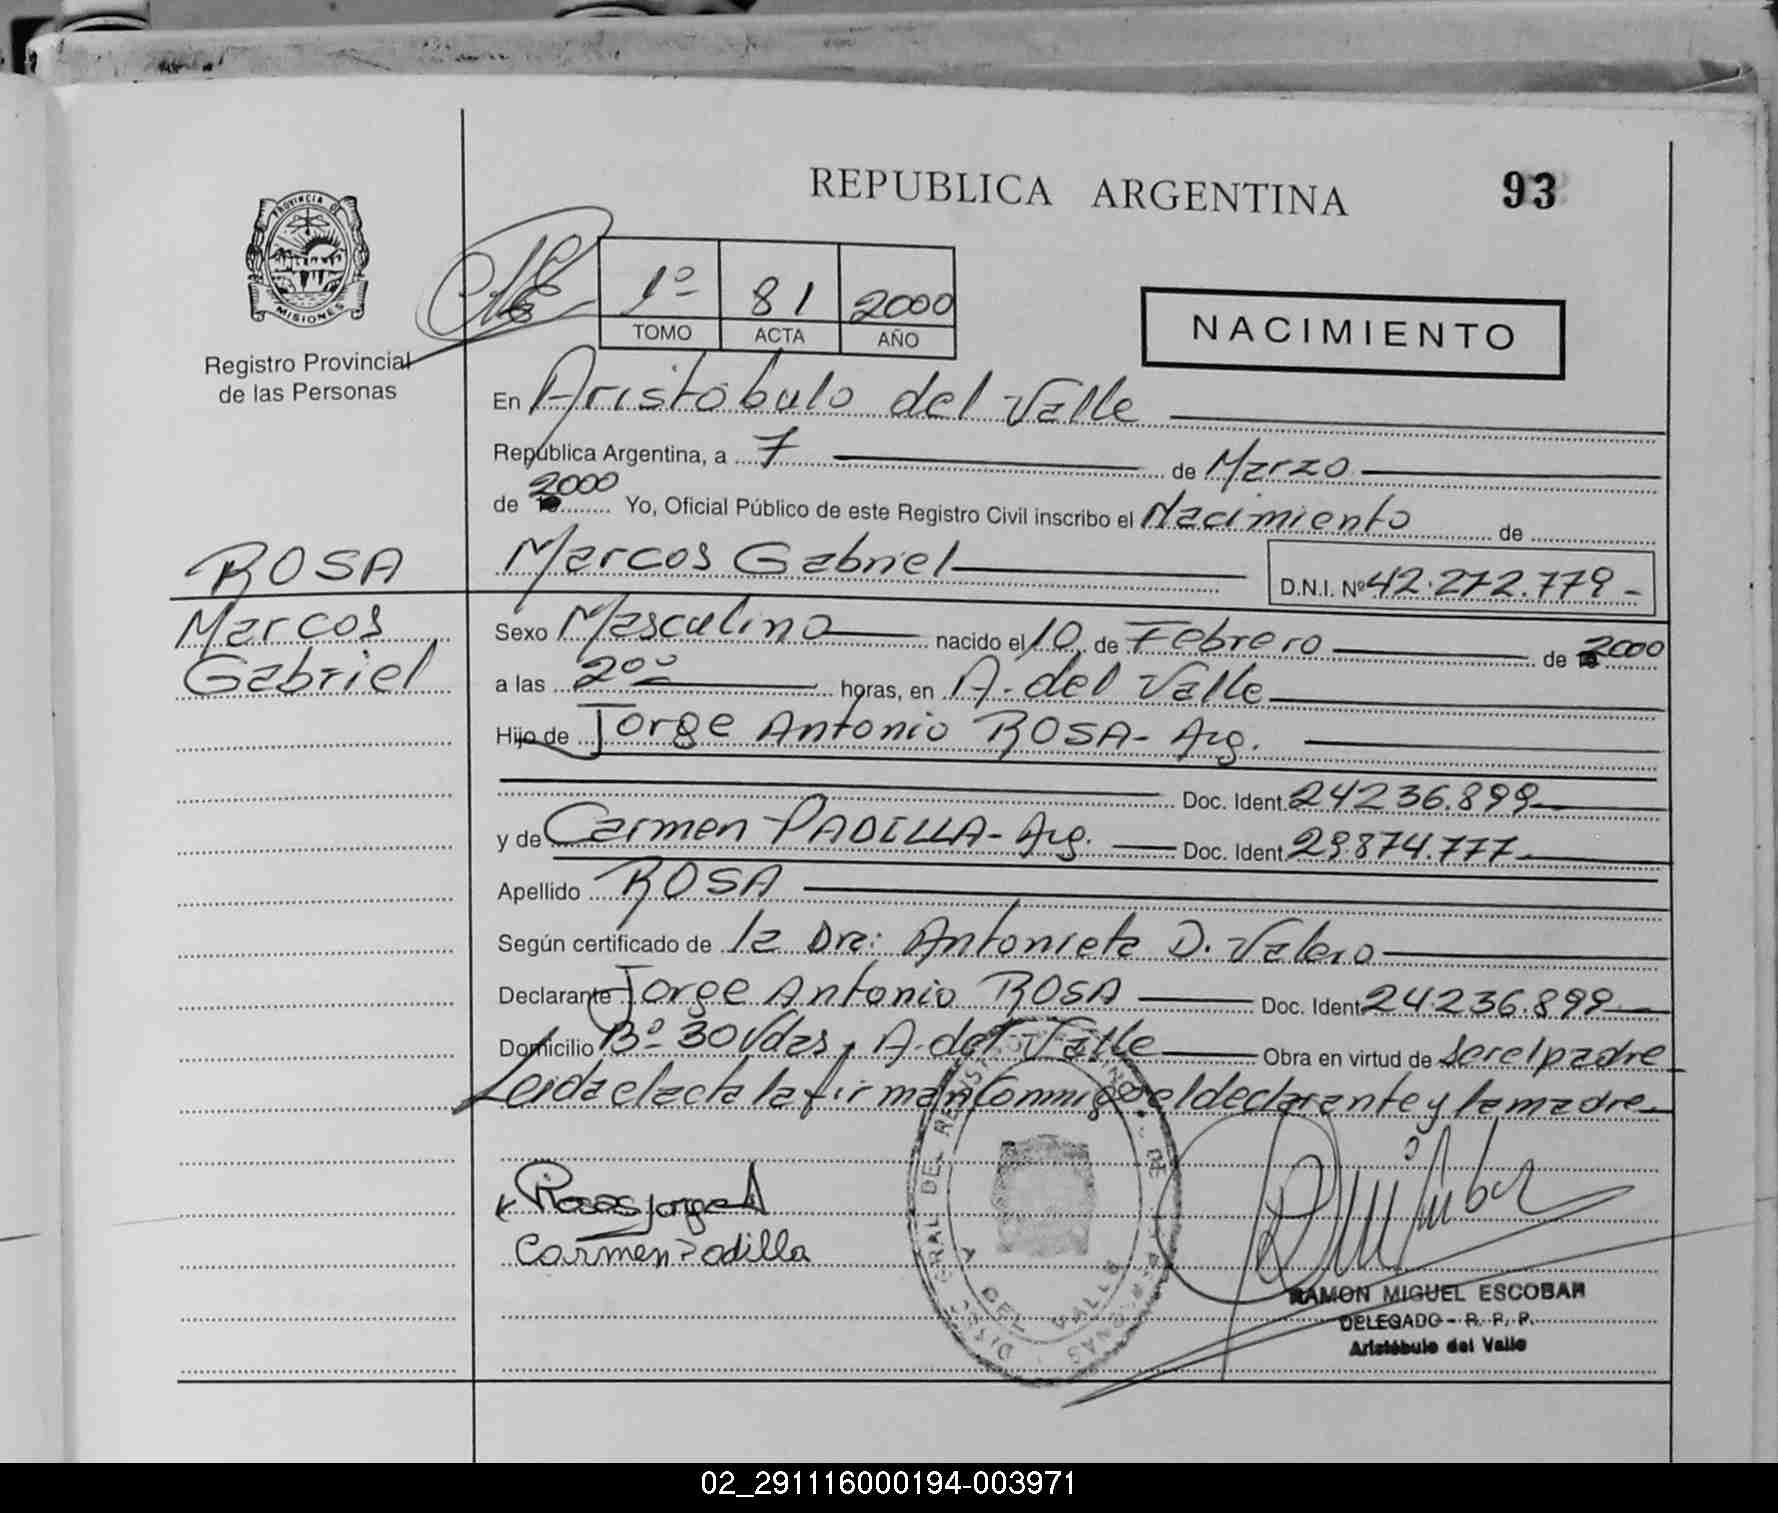 REPUBLICA ARGENTINA
93
PROVINCIA DE
MISIONES
Registro Provincial
de las Personas
1º 81 2000
TOMO ACTA AÑO
NACIMIENTO
En Aristóbulo del Valle
República Argentina, a 7 de Marzo
de 2000 Yo, Oficial Público de este Registro Civil inscribo el Nacimiento de
Marcos Gabriel D.N.I. Nº 42.272.779-
ROSA
Marcos
Gabriel
Sexo Masculino nacido el 10 de Febrero de 2000
a las 2:00 horas, en A. del Valle
Hijo de Jorge Antonio ROSA- Arg.
Doc. Ident. 24236.899
y de Carmen PADILLA- Arg. Doc. Ident. 29874.777
Apellido ROSA
Según certificado de la Dra: Antonieta D. Valero
Declarante Jorge Antonio ROSA Doc. Ident. 24.236.899
Domicilio Bº 30 Vdas, A. del Valle Obra en virtud de ser el padre
Leida el acta la firman conmigo el declarante y la madre
Rosas Jorge A
Carmen Padilla
A DEL VALLE
RAMON MIGUEL ESCOBAR
DELEGADO - R. P. P.
Aristóbulo del Valle
02_291116000194-003971